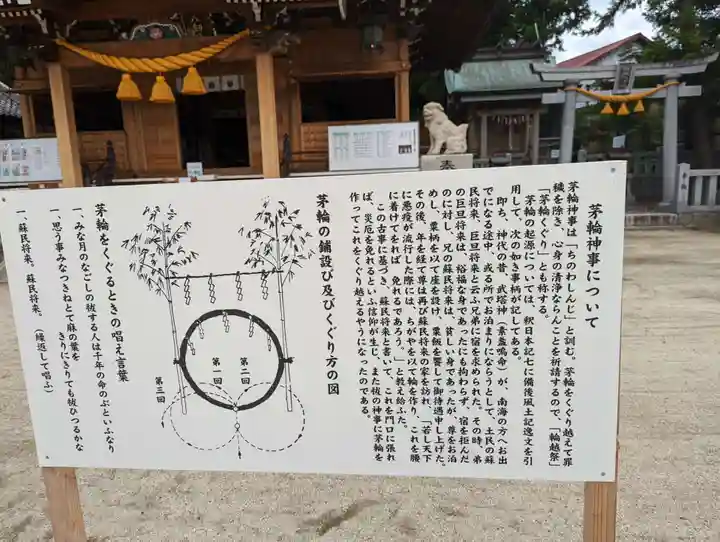 茅輪神事について
茅輪神事は「ちのわしんじ」と訓む。茅輪をくぐり越えて罪
穢を除き、心身の清浄ならんことを祈請するので、「輪越祭」
「茅輪くぐり」とも称する。
茅輪の起源については、釈日本記七に備後風土記逸文を引
用して、次の如き事柄が記してある。
即ち、神代の昔、武塔神（素盞嗚命）が、南海の方へお出
でになる途中、或る所でお泊まりにならうとして、土民の蘇
民将来、巨旦将来と云ふ兄弟に宿を求められた。その時、弟
の巨旦将来は、裕福な身であったにも拘わらず、宿を拒んだ
のに対し、兄の蘇民将来は、貧しい身であったが、尊をお泊
めし、粟柄を以て座を設け、粟飯を饗して御待遇申し上げた。
その後、年を経て尊は再び蘇民将来の家を訪れ、「若し天下
に悪疫が流行した際には、ちがやを以て輪を作り、これを腰
に着けてをれば、免れるであろう。」と教え給ふた。
この古事に基づき、蘇民将来と書いて、これを門口に張れ
ば、災厄を免れるといふ信仰が生じ、また祓の神事に茅輪を
作ってこれをくぐり越えるやうになったのである。
茅輪の鋪設及びくぐり方の図
第二回
第一回
第三回
茅輪をくぐるときの唱え言葉
一、みな月のなごしの祓する人は千年の命のぶといふなり
一、思う事みなつきねとて麻の葉を
きりにきりても祓ひつるかな
一、蘇民将来、蘇民将来、　（繰返して唱ふ）
奉